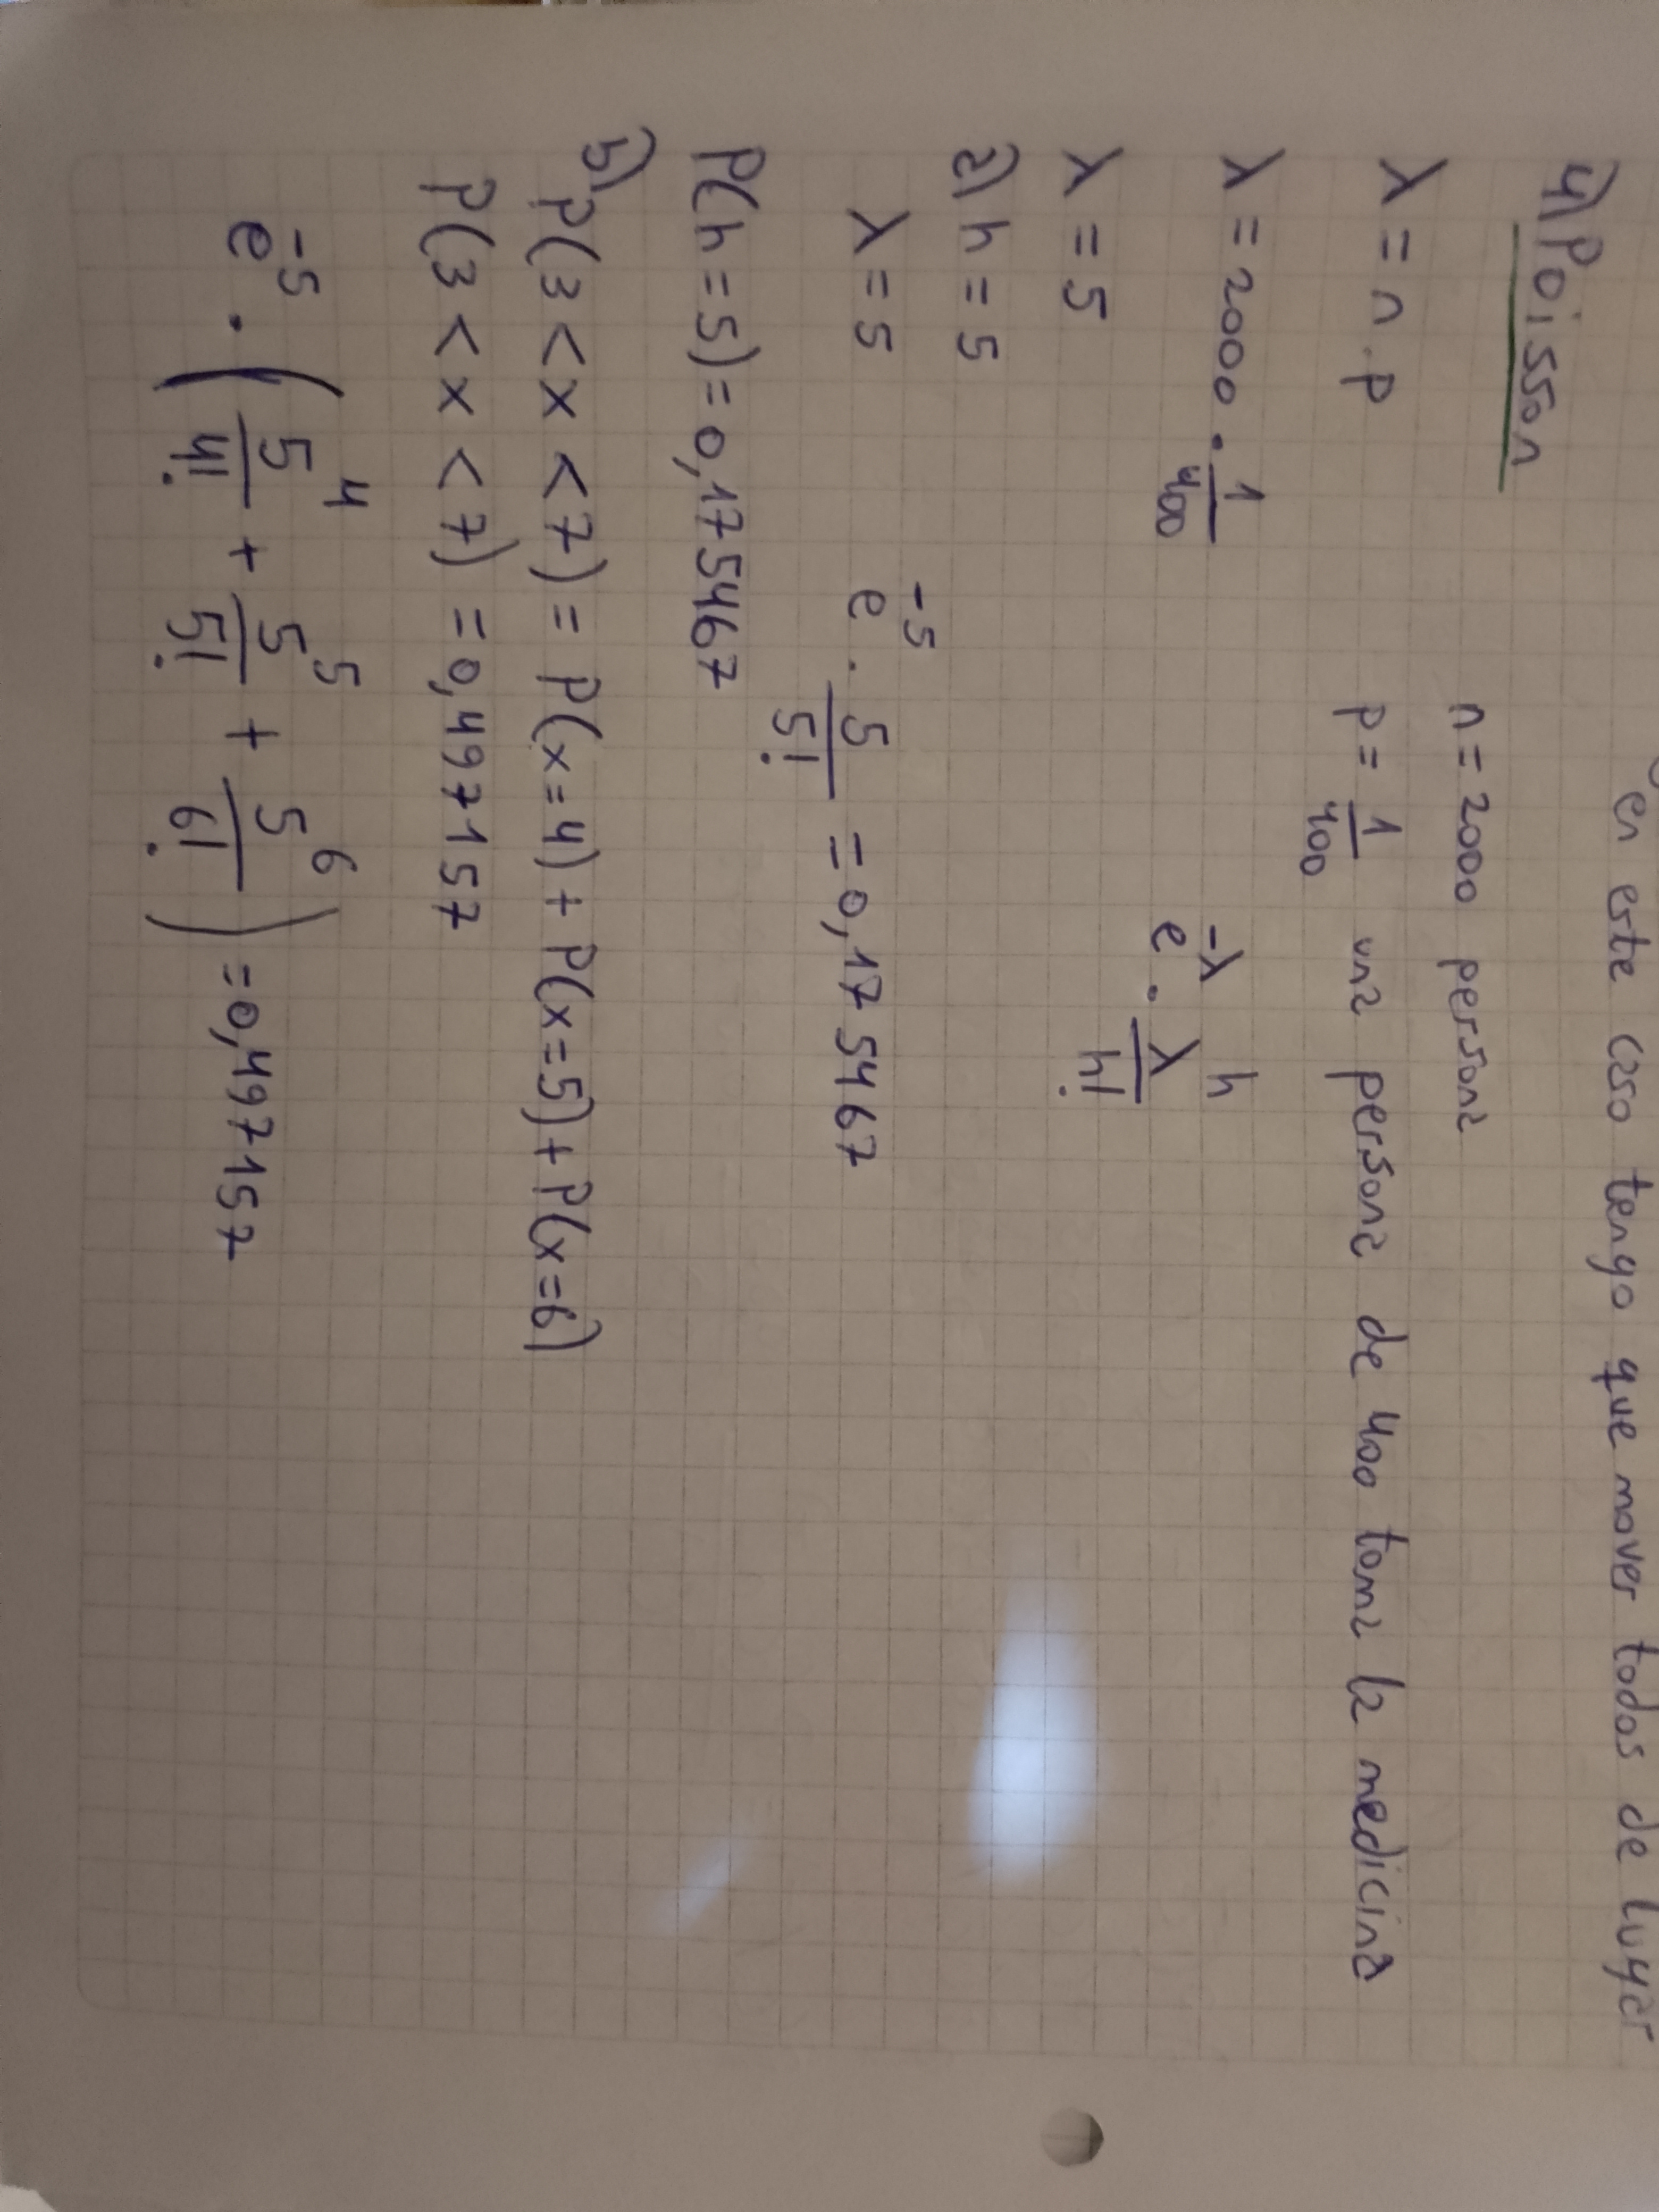 en este caso tengo que mover todos de lugar
4) Poisson
n = 2000 persona
λ = n . p
p = 1/400 una persona de 400 toma la medicina
λ = 2000 . 1/400
e^-λ . λ^h/h!
λ = 5
a) h = 5
λ = 5 e^-5 . 5/5! = 0,175467
P(h = 5) = 0,175467
b) P(3 < x < 7) = P(x = 4) + P(x = 5) + P(x = 6)
P(3 < x < 7) = 0,497157
e^-5 . (5^4/4! + 5^5/5! + 5^6/6!) = 0,497157